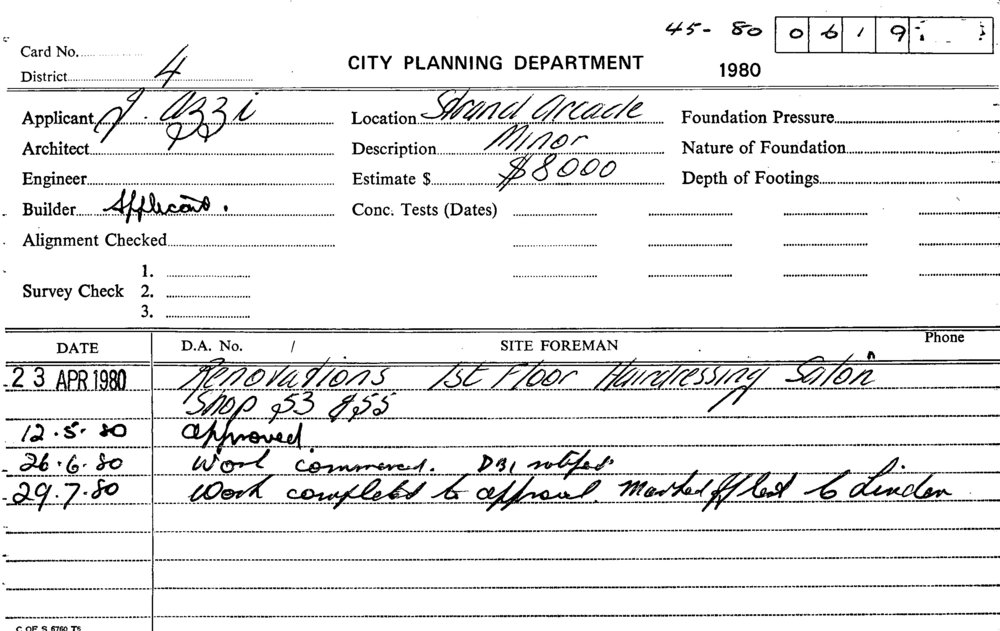 45-80 0619
Card No.
District 4
CITY PLANNING DEPARTMENT
1980
Applicant J. Azzi
Location Strand Arcade
Foundation Pressure
Architect
Description Minor
Nature of Foundation
Engineer
Estimate $ $8000
Depth of Footings
Builder Applicant.
Conc. Tests (Dates)
Alignment Checked
Survey Check 1.
2.
3.
DATE D.A. No. / SITE FOREMAN Phone
23 APR 1980 Renovations 1st Floor Hairdressing Salon
Shop 53 & 55
12.5.80 approved
26.6.80 Work commenced. notified
29.7.80 Work completed to approval. Marked off to Linden
C OF S 6760 T5